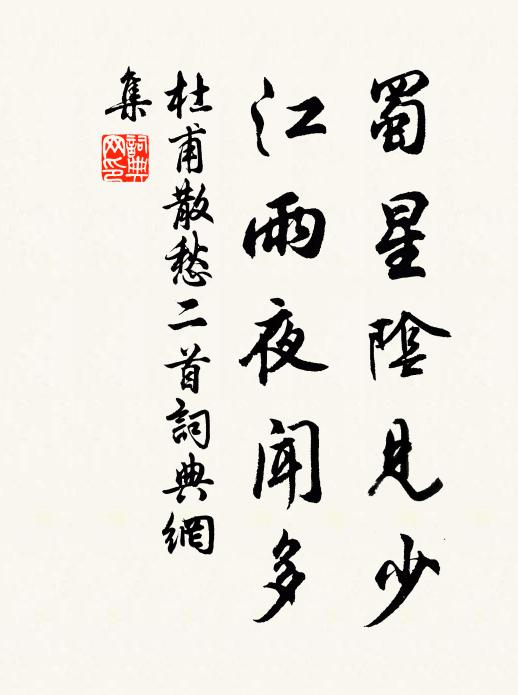 蜀星陰見少
江雨夜聞多
杜甫散愁二首詞典網
集
詞典
网印